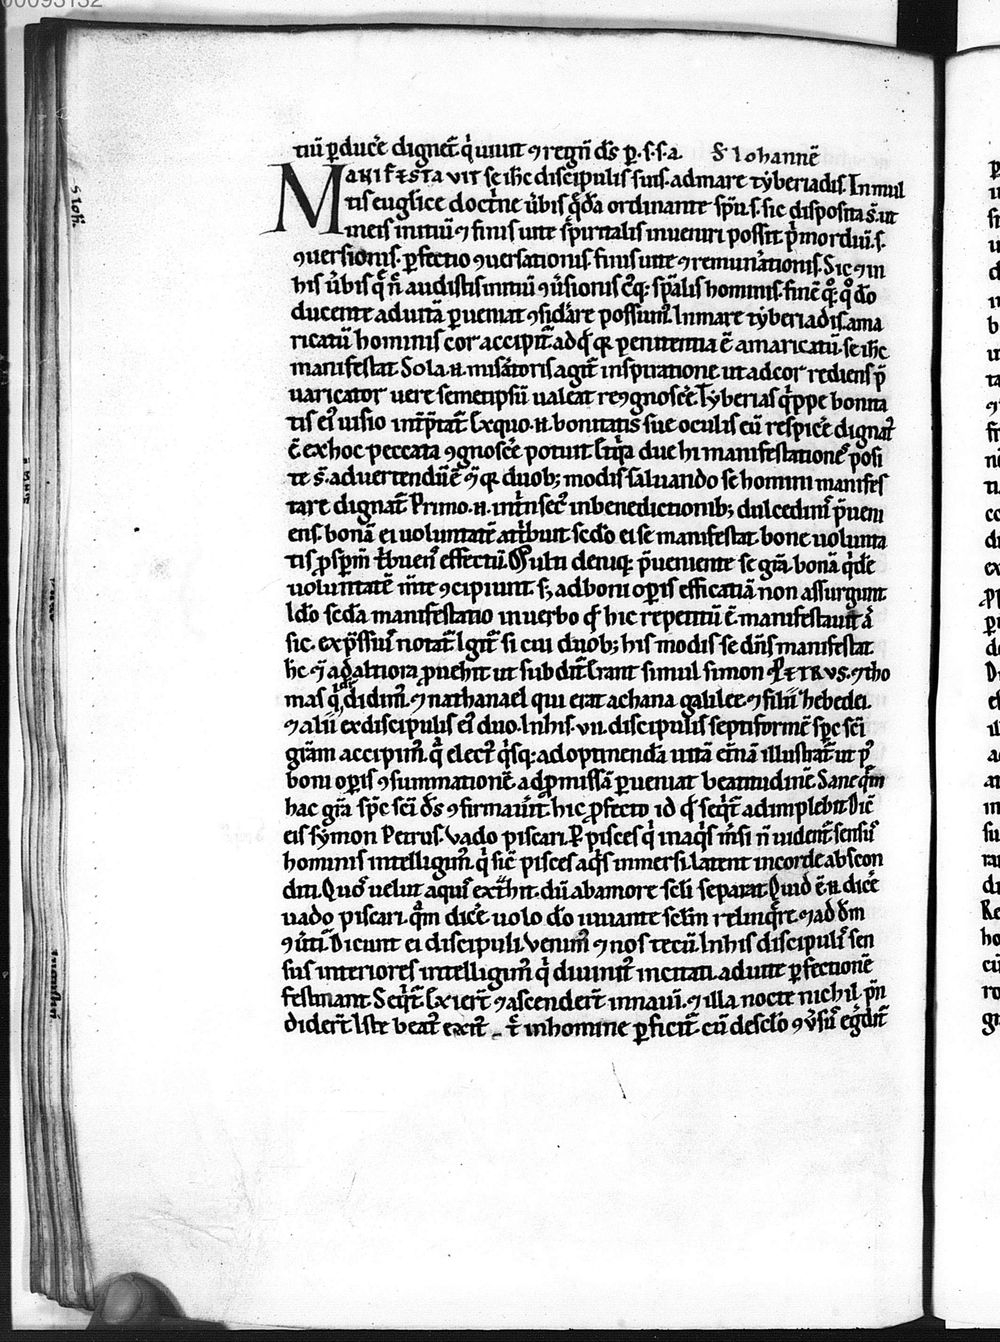 00093132
tiū ꝑduc̄e digneť q̇ uiuit ⁊ regn̄ ds̄ ꝑ.s.s.a. S' Iohannē
MANIFESTAVIT se ih̄c discipulis suis. ad mare tẏberiadis. In mul
tis euglīce doctⁱne ūbis q̇dā ordinante sp̄u.s. sic disposita s̄. ut
in eis initiū ⁊ finis uite sp̄irtalis inueniri possit. p̄mordiū.s.
ꝯuersionis. ꝑfectio ꝯuersationis. finis uite ⁊ remun̄ationis. Sic ⁊ in
his ūbis q̄ n̄ audistis initiū ꝯūsionis eiq; sp̄alis hominis. finē q̊; q̊ dō
ducente ad uitā ꝑueniat ꝯsid̄are possum᷒. In mare tẏberiadis. ama
ricatū hominis cor accipit᷑ ad q̄ q̄ penitentia ē amaricatū. se ih̄c
manifestat Sola.n. mis̄atoris agit᷑ inspiratione ut ad cor rediens p̄
uaricator uere semetipsū ualeat reꝯgnosc̄e. Tyberias q̇ppe bonita
tis ei᷒ uisio int̄p̄tat᷑ Ex quo.n. bonitatis sue oculis eū respic̄e dignat᷑
ē ex hoc peccata ꝯgnosc̄e potuit Et q̇a due hi manifestatione᷒ posi
te s̄. aduertendū ē q̄ q̄ duob; modis saluando se homini manifes
tare dignat᷑ Primo.n. int̄nsec᷒ in benedictionib; dulcedini᷒ p̄ueni
ens. bonā ei uoluntatē attⁱbuit scdō ei se manifestat bone uolunta
tis ꝓsꝑm tⁱbuens effectū. Multi deniq; p̄ueniente se gr̄a bonā q̇de
uoluntatē m̄te ꝯcipiunt. s; ad boni oꝑis efficatiā non assurgunt
Idō scdā manifestatio in uerbo q̄ hic repetitū ē. manifestauit ā
sic. exp̄ssiu᷒ notat᷑ Igit᷑ si cui duob; his modis se dn̄s manifestat
hc̄ q̄ ad altiora ꝓuehit ut subdit᷑ Erant simul simon PETRVS. ⁊ tho
mas q̇ d̄r didim᷒. ⁊ nathanael qui erat a chana galilee. ⁊ filii hebedei.
⁊ alii ex discipulis ei᷒ duo. In his. vii. discipulis septiformē sp̄c sc̄i
gr̄am accipim᷒. q̄ elect᷒ q̇sq; ad optinendā uitā et̄nā illustrat᷑ ut p᷒
boni oꝑis ꝯsummationē. ad ꝓmissā ꝑueniat beatitudinē Sane q̄m
hac gr̄a sp̄c sc̄i ds̄ ꝯfirmau̇it. hic ꝓfecto id q̄ seqit᷑ adimplebit Dic̄
eis sẏmon Petrus. Vado piscari. ꝑ pisces q̇ in aq̇s m̄si n̄ uident᷑ sensus
hominis intelligim᷒. q̇ sic̄ pisces aq̇s immersi. latent in corde abscon
diti. Quos uelut aquis ext̄hit. dū ab amore seli separat. Quid ē.n. dic̄e
uado piscari. q̄m dic̄e uolo dō iuuante selm relinq̄re. ⁊ ad dm̄
ꝯu̇ti. Dicunt ei discipuli. Venim᷒ ⁊ nos tecū In his discipulis sen
sus interiores intelligim᷒ q̇ diuinit᷒ incitati. ad uite ꝑfectionē
festinant. Seqit᷑ Exiert̄ ⁊ ascendert̄ in nauī. ⁊ illa nocte nichil p̄n
didert̄ Iste beat᷒ exit᷒ t᷑ in homine ꝑficit᷑ cū de sclo ꝯūsu᷒ eg̃dit᷑
S Ioh.